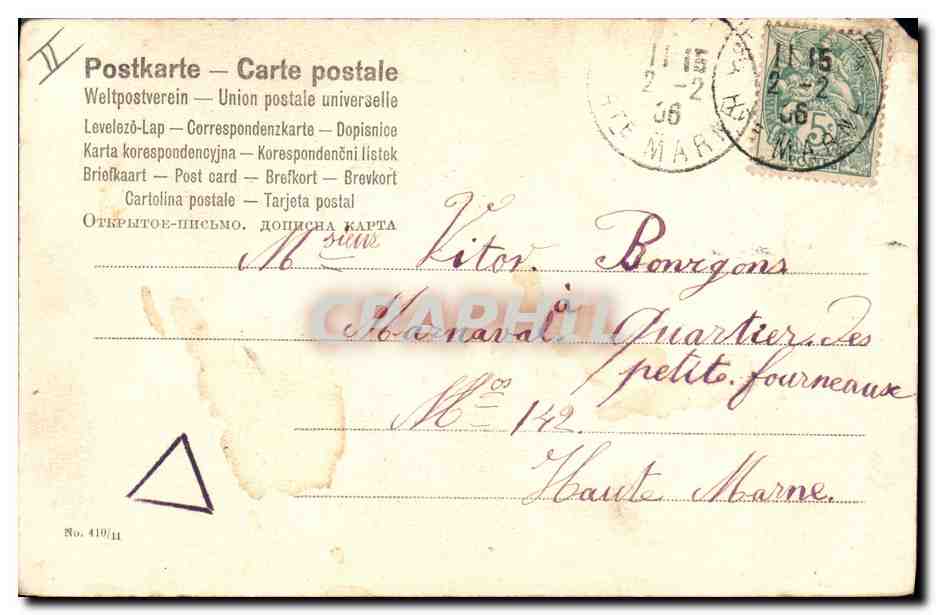 II
Postkarte — Carte postale
Weltpostverein — Union postale universelle
Levelezö-Lap — Correspondenzkarte — Dopisnice
Karta korespondencyjna — Korespondenční listek
Briefkaart — Post card — Brefkort — Brevkort
Cartolina postale — Tarjeta postal
Открытое-письмо. дописна карта
11 15
2 - 2
06
HTE MARN
11 15
2 - 2
06
HTE MARN
5c
Msieur Vitor. Bourgons
à
Marnaval. Quartier. des
petits. fourneaux
Mos 142.
Haute Marne.
No. 410/11
CPAPHIL